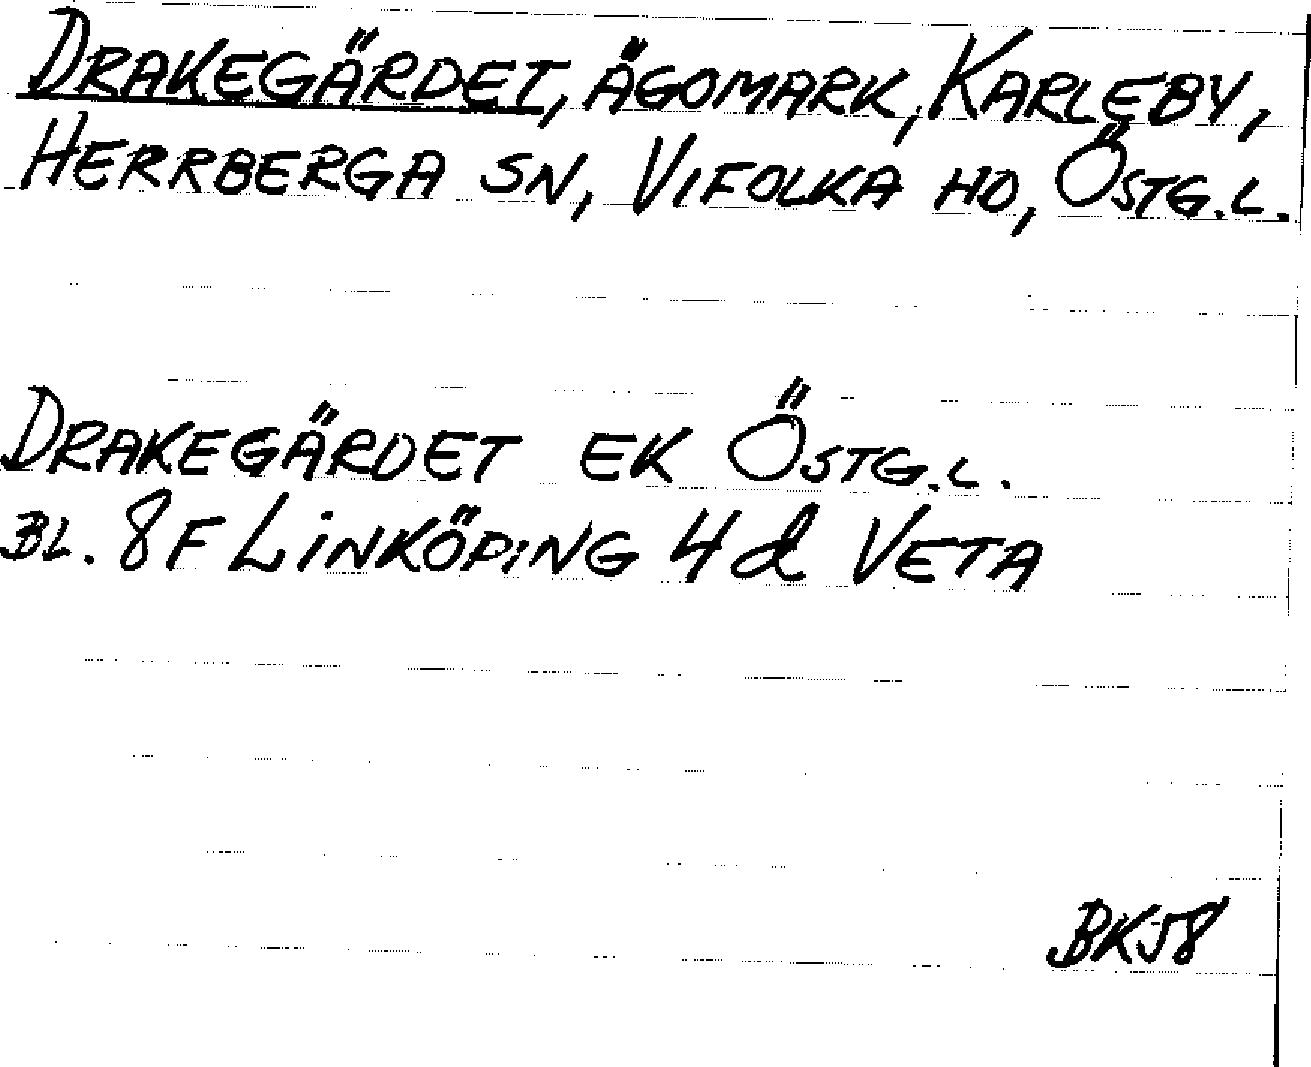 DRAKEGÄRDET, ÄGOMARK, KARLEBY,
HERRBERGA SN, VIFOLKA HD, ÖSTG.L.
DRAKEGÄRDET EK ÖSTG.L.
BL. 8F LINKÖPING 4d VETA
BK58